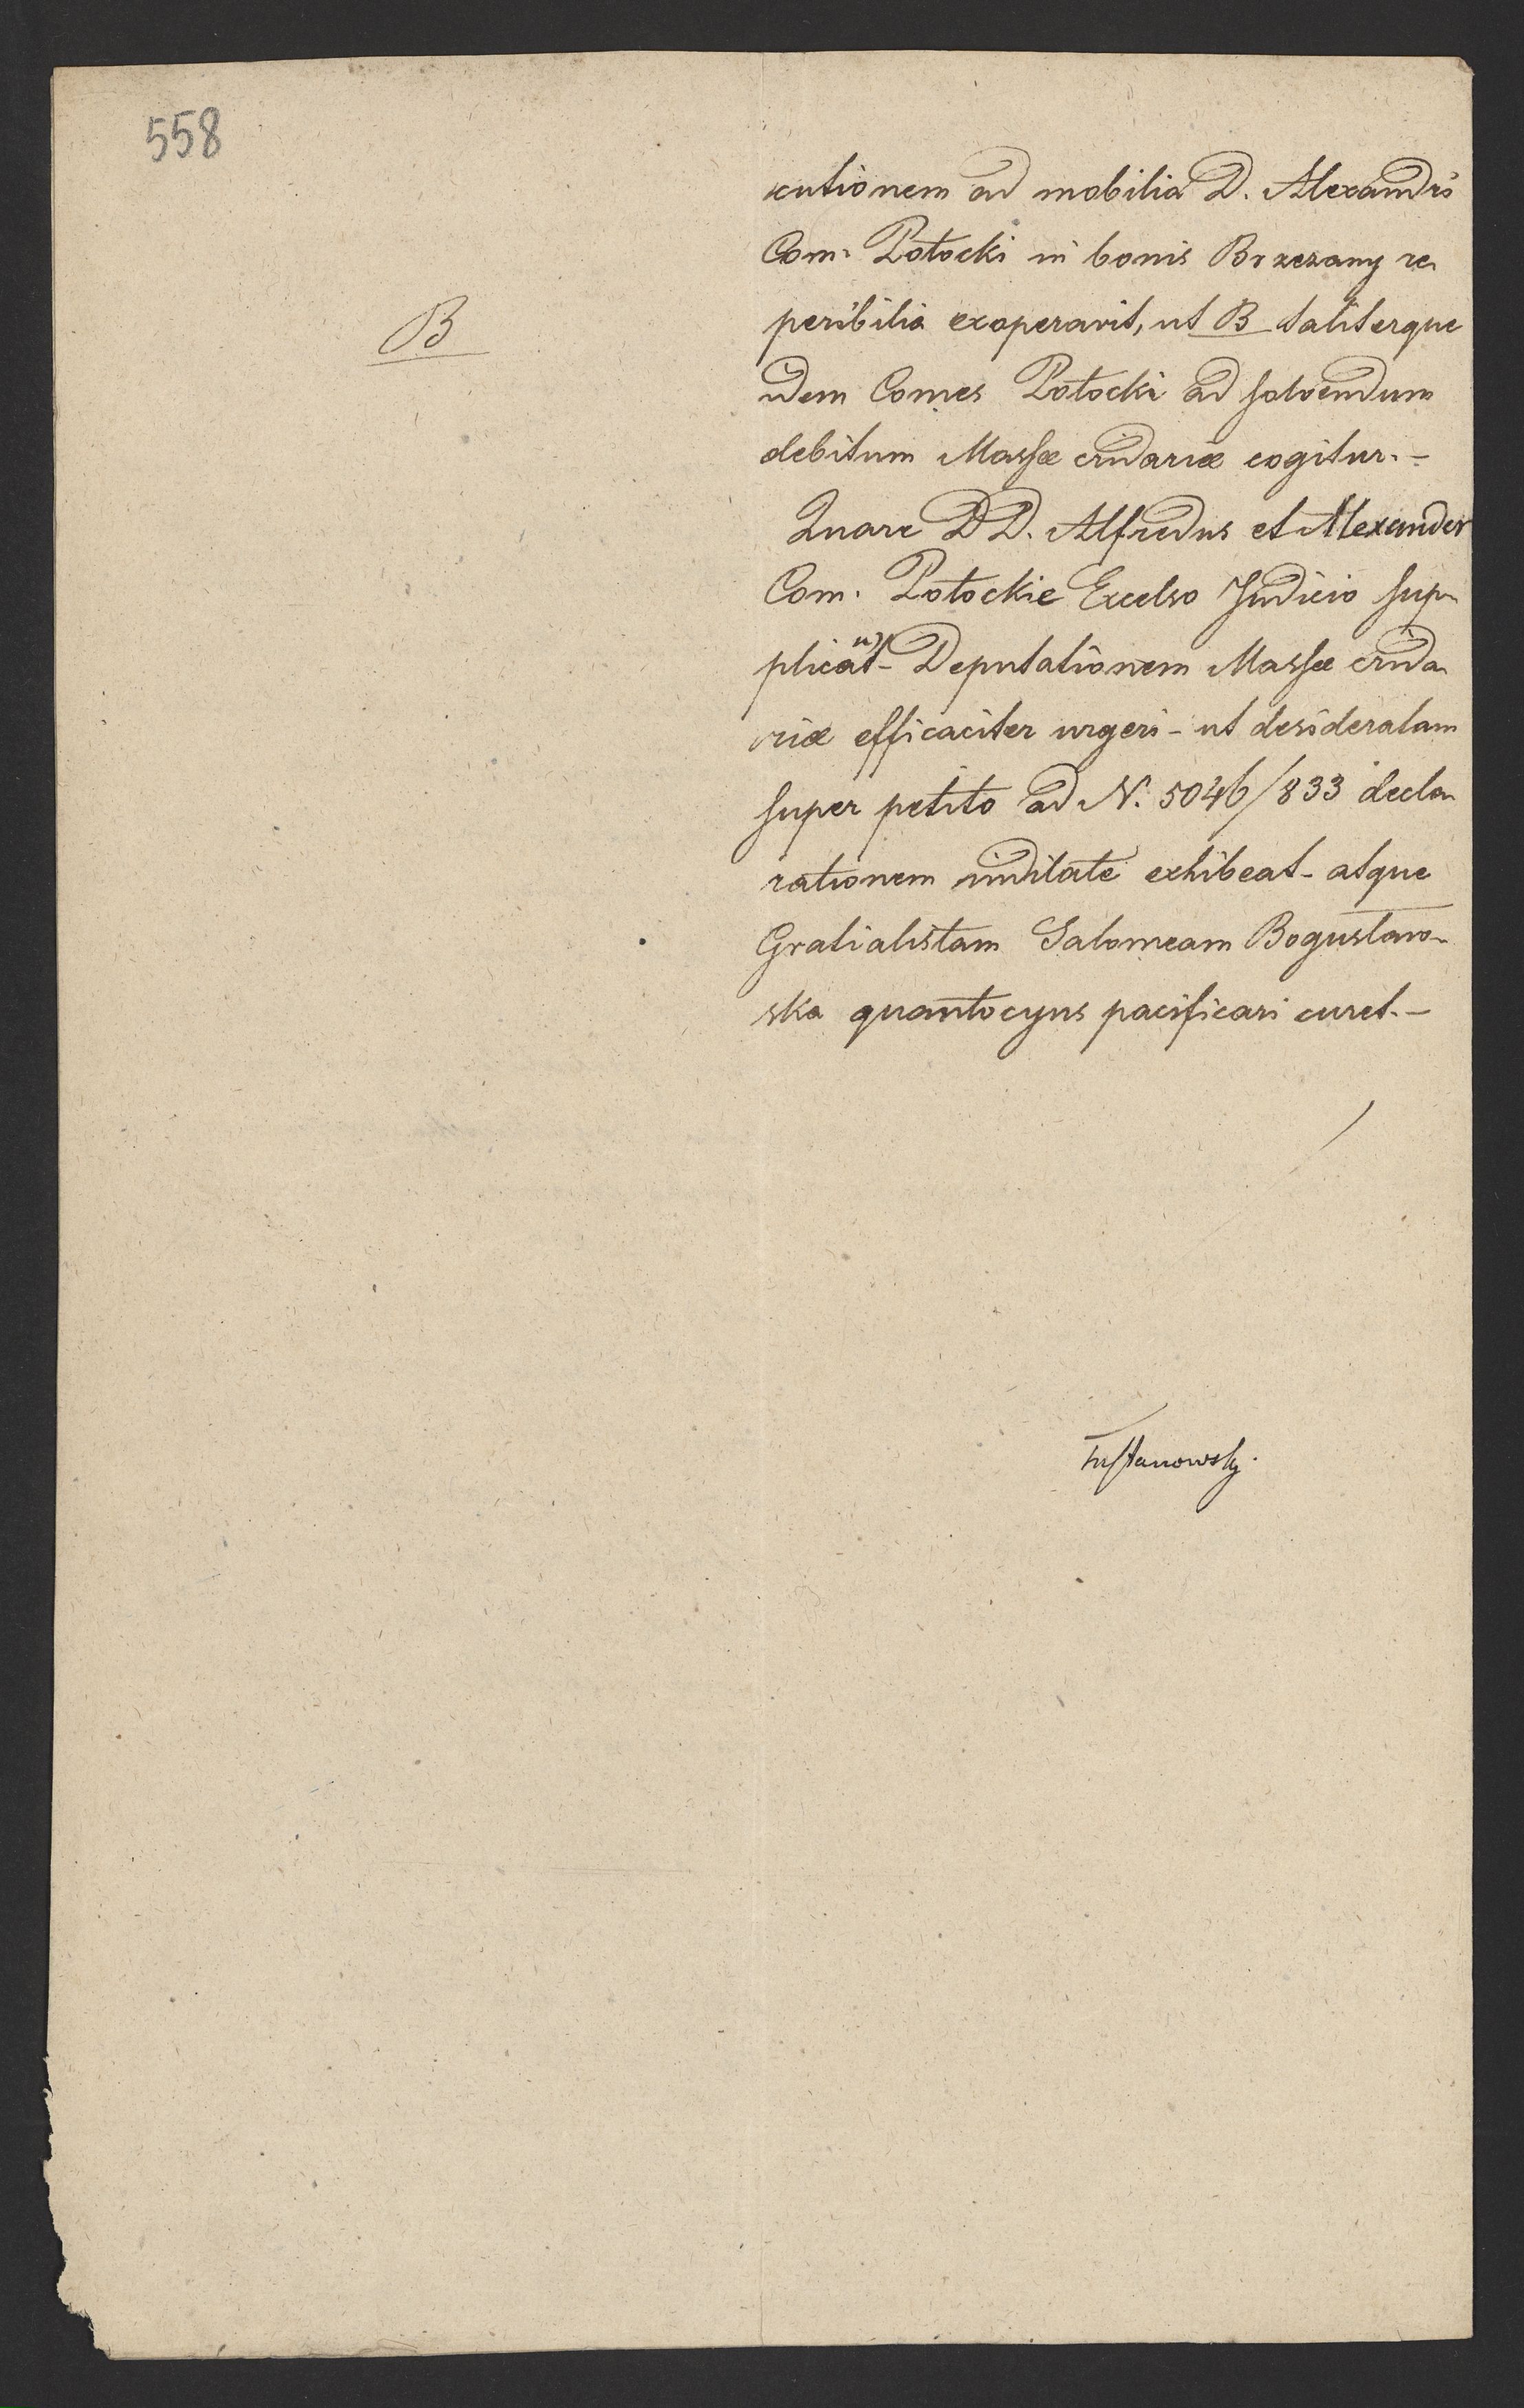 558
B
xcutionem ad mobilia D. Alexandri
Com. Potocki in bonis Brzezany re-
peribilia exoperavit, ut B taliterque
idem Comes Potocki ad solvendum
debitum Massæ cridariæ cogitur.-
Quare DD. Alfredus et Alexander
Com. Potockie Excelso Judicio sup-
plicant- Deputationem Massæ crida-
riæ efficaciter urgeri - ut desideratam
super petito ad N. 5046/833 decla-
rationem indilate exhibeat - atque
Gratialistam Salomeam Bogusław-
ska quantocyus pacificari curet.-
Tustanowsky.